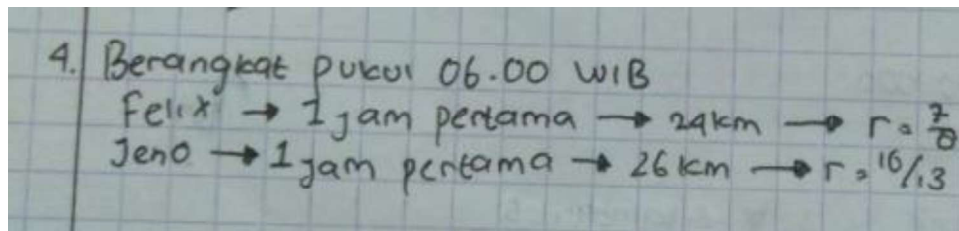 4. Berangkat pukul 06.00 WIB
Felix → 1 jam pertama → 24km → r = 7/8
Jeno → 1 jam pertama → 26 km → r = 10/13